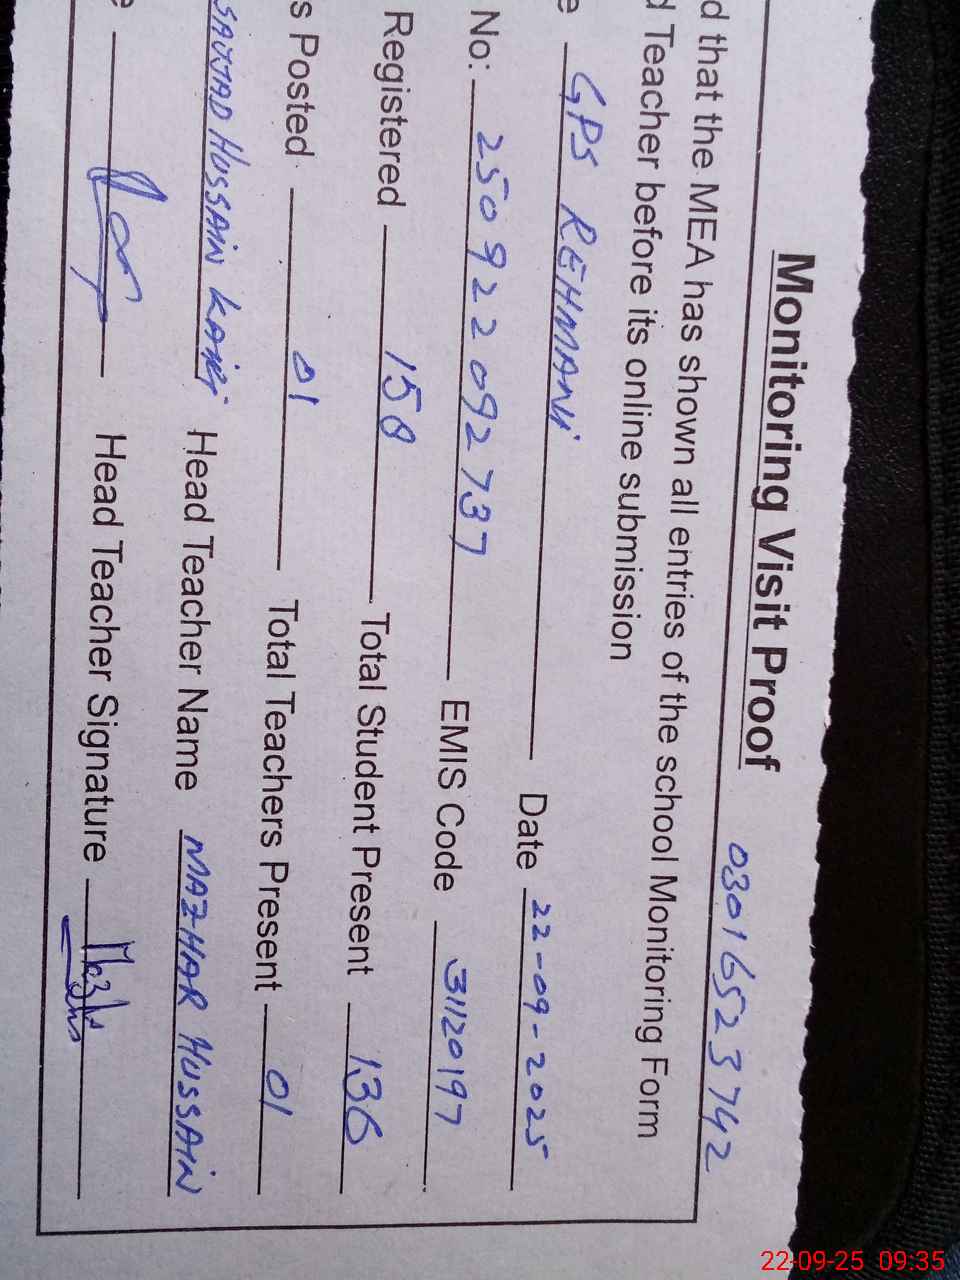 Monitoring Visit Proof 03016523742
d that the MEA has shown all entries of the school Monitoring Form
d Teacher before its online submission
e GPS REHMANi Date 22-09-2025
No: 250922092737 EMIS Code 31120197
Registered 150 Total Student Present 136
s Posted 01 Total Teachers Present 01
SAJJAD HUSSAIN Head Teacher Name MAZHAR HUSSAIN
e Head Teacher Signature
22-09-25 09:35